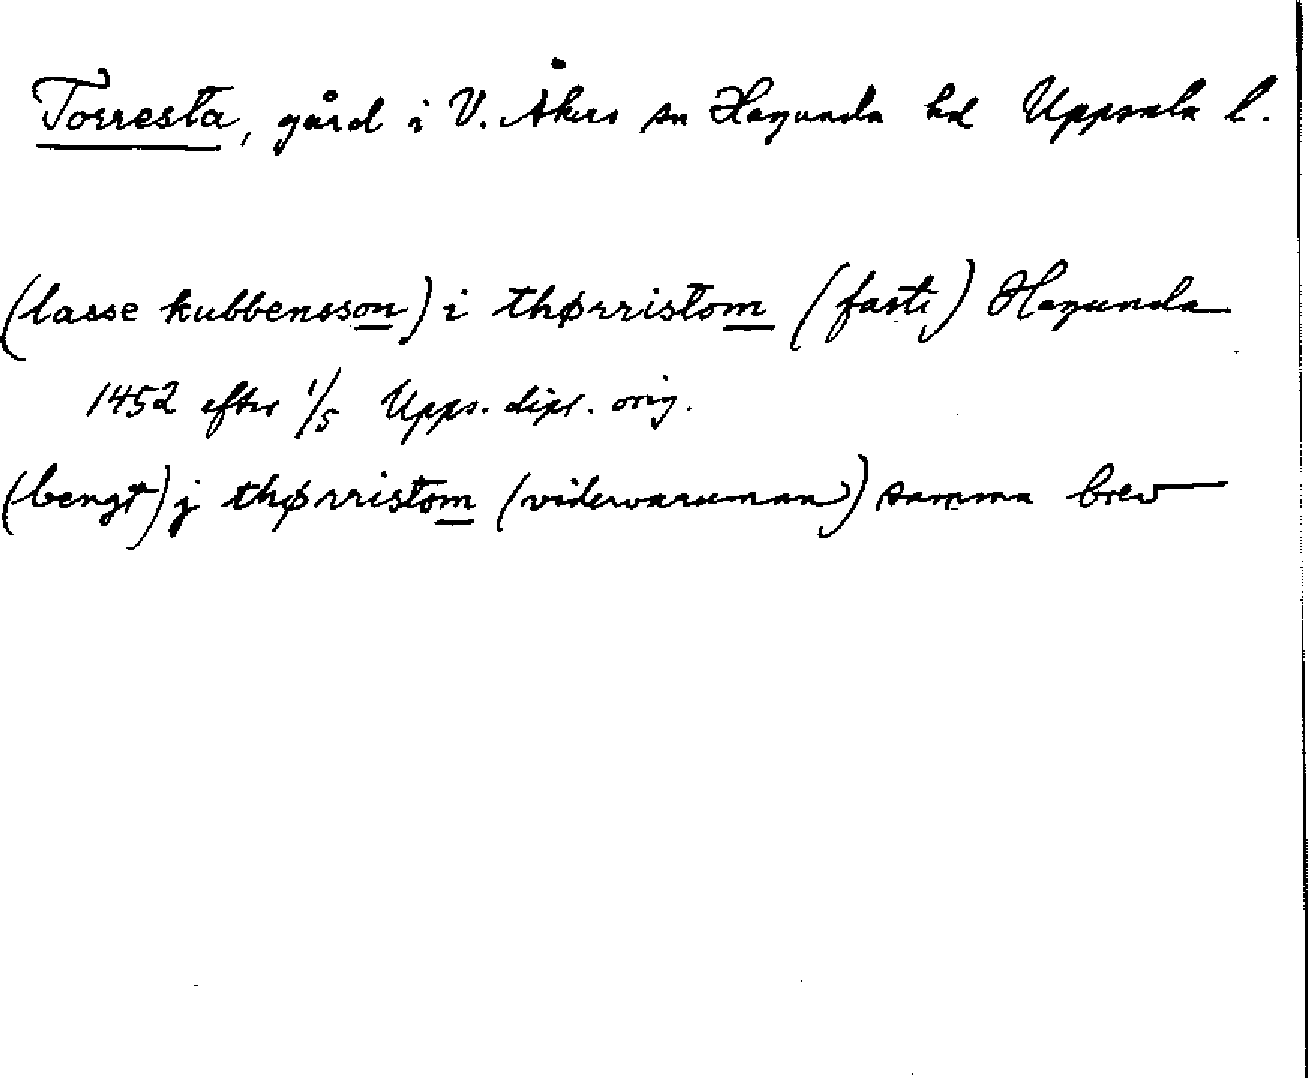 Torresta, gård i V. Åkers sn Hagunda hd Uppsala l.
(lasse kubbensson) i thørristom (faste) Hagunda
1452 efter 1/5 Upps. dipl. orig.
(bengt) j thørristom (viderwaruman) samma brev